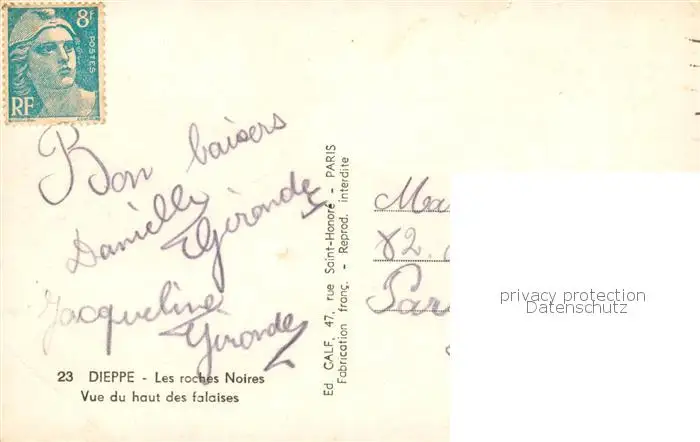 8F
POSTES
RF
Bon baisers
Danielle Gironde
Jacqueline
Gironde
23 DIEPPE - Les roches Noires
Vue du haut des falaises
Ed. CALF, 47, rue Saint-Honoré - PARIS
Fabrication franç. - Reprod. interdite
82.
privacy protection
Datenschutz